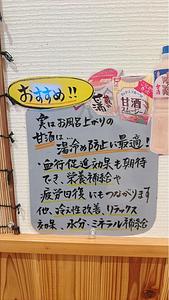 おすすめ!!
甘酒
実はお風呂上がりの
甘酒は…
湯冷め防止に最適!
・血行促進効果も期待
でき、栄養補給や
疲労回復にもつながります
他、冷え性改善、リラックス
効果、水分・ミネラル補給